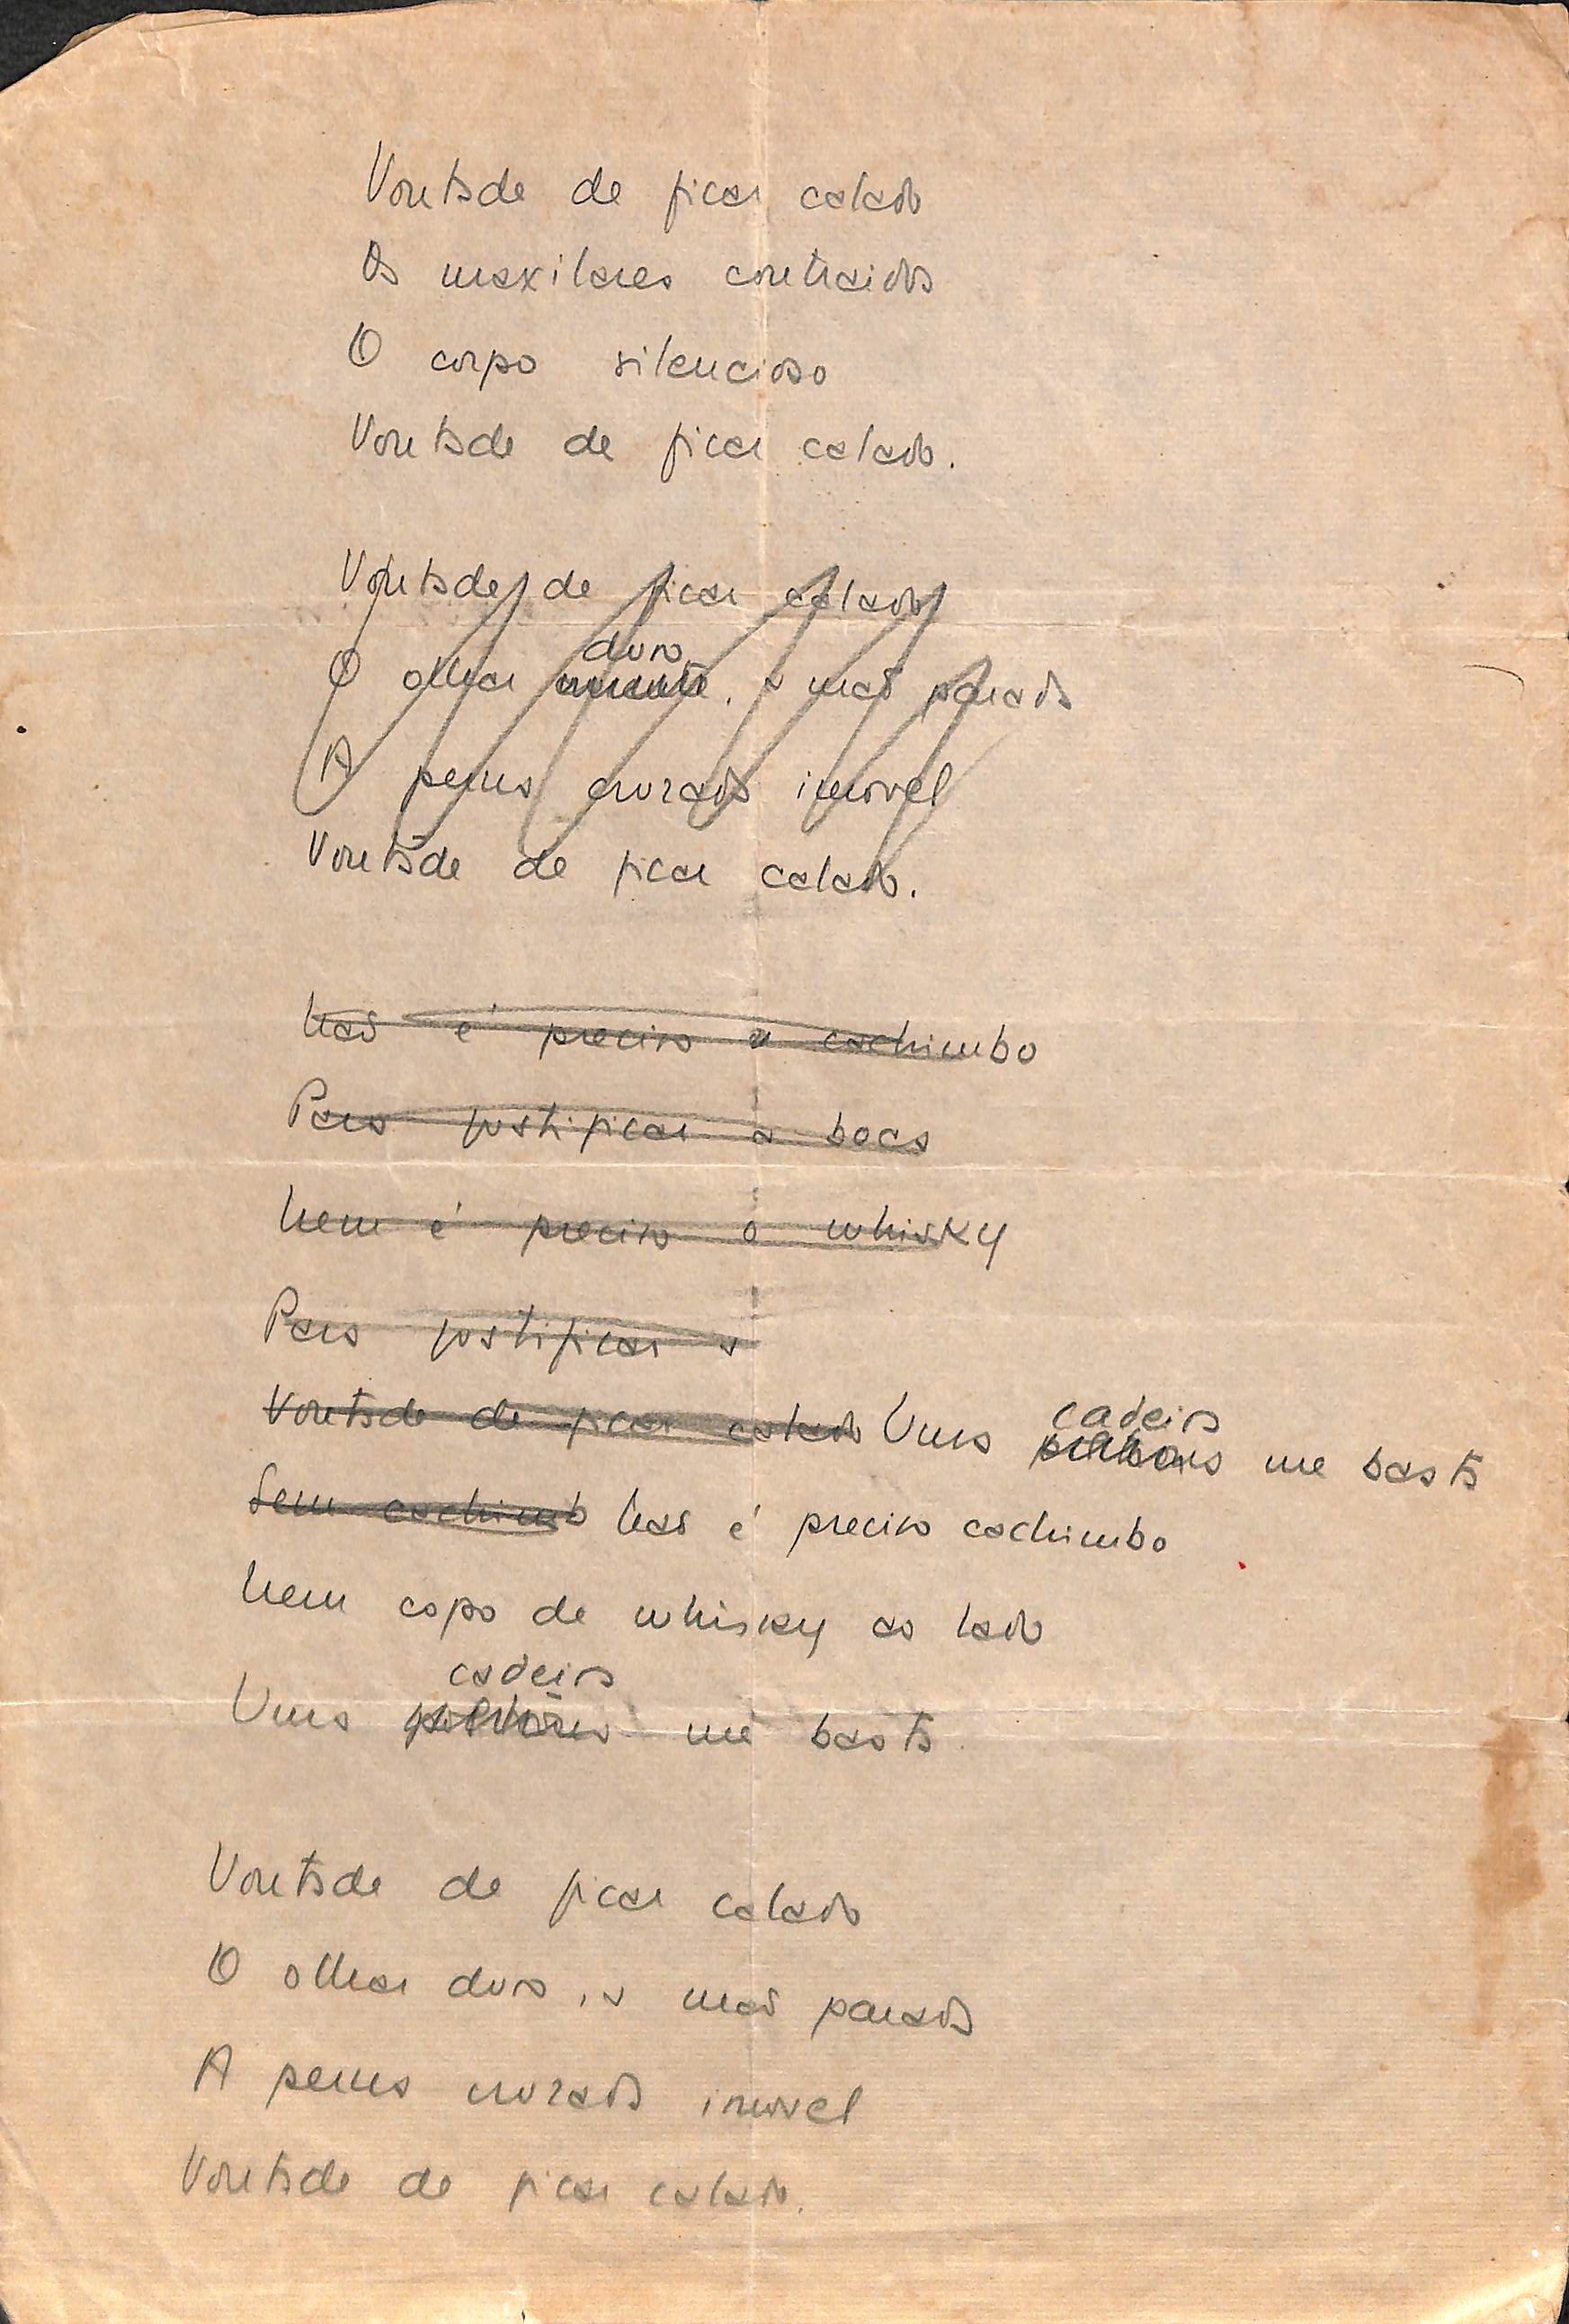 Vontade de ficar calado
Os maxilares contraidos
O corpo silencioso
Vontade de ficar calado.
Vontade de ficar calado
duro
O olhar , a mão parada
A perna cruzada imovel
Vontade de ficar calado.
Não é preciso o cachimbo
Para justificar a boca
Nem é preciso o whisky
Para justificar a
cadeira
Vontade de ficar calado Uma poltrona me basta
Sem cachimbo Não é preciso cachimbo
Nem copo de whisky ao lado
cadeira
Uma poltrona me basta
Vontade de ficar calado
O olhar duro, a mão parada
A perna cruzada imovel
Vontade de ficar calado.